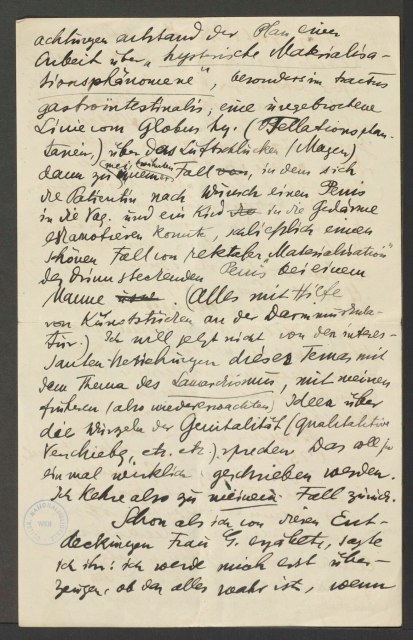 achtungen entstand der Plan einer
Arbeit über „hysterische Materialisa-
tionsphänomene", besonders im tractus
gastrointestinalis, eine ungebrochene
Linie vom Globus hy. (Fellationsphan-
tasien,) über das Luftschlucken (Magen)
dann zu meinem Fall von, in dem sich
die Patientin nach Wunsch einen Penis
in die Vag. und ein Kind in die Gedärme
eskamotieren konnte, schliesslich einen
schönen Fall von rektaler „Materialisation"
des drinn steckenden Penis bei einem
Manne (Alles mit Hilfe
von Kunststücken an der Darmmuskula-
tur.) Ich will jetzt nicht von den interes-
santen Beziehungen dieses Temas mit
dem Thema des Lamarckismus, mit meinen
früheren (also wiedererwachten) Ideen über
die Wurzeln der Genitalität (qualitative
Verschiebg, etc. etc.) sprechen. Das soll ja
einmal wirklich geschrieben werden.
Ich kehre also zu meinem Fall zurück.
Schon als ich von diesen Ent-
deckungen Frau G. erzählte, sagte
ich ihr: ich werde mich erst über-
zeugen, ob das alles wahr ist, wenn
NATIONALBIBLIOTHEK
WIEN